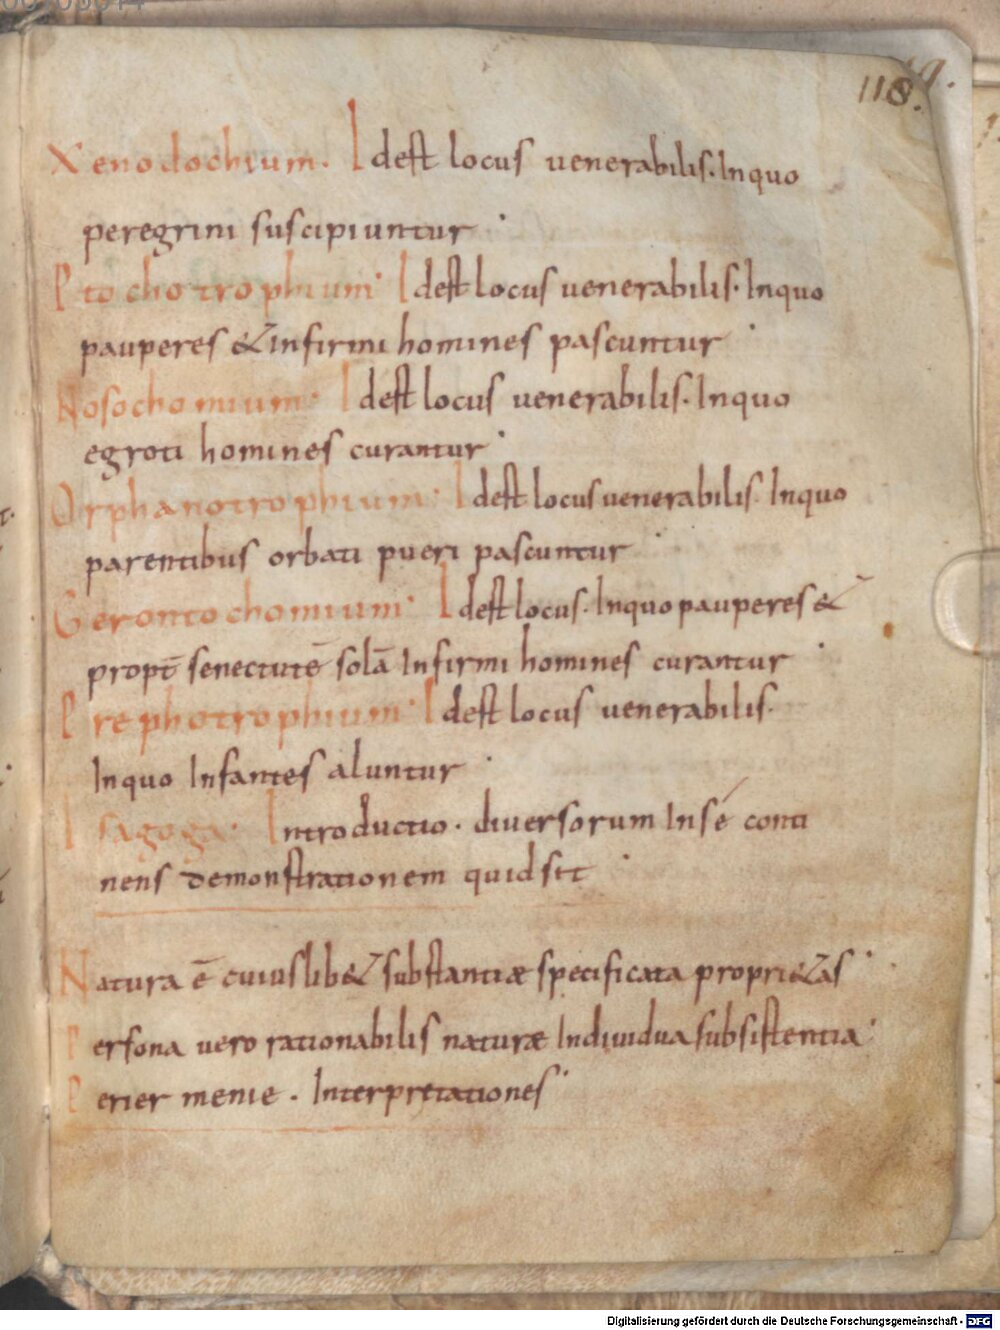 118.
Xenodochium. Idest locus venerabilis. Inquo
peregrini suscipiuntur
Ptochotrophium. Idest locus venerabilis. Inquo
pauperes & infirmi homines pascuntur
Nosochomium. Idest locus venerabilis. Inquo
egroti homines curantur
Orphanotrophium. Idest locus venerabilis. Inquo
parentibus orbati pueri pascuntur
Gerontochomium. Idest locus. Inquo pauperes &
propt̄ senectutē solā Infirmi homines curantur
Prephotrophium. Idest locus venerabilis.
Inquo Infantes aluntur
Isagoga. Introductio. diversorum In sé conti
nens demonstrationem quid sit
Natura ē cuiuslib& substantiæ specificata propri&as
Persona vero rationabilis naturæ Individua subsistentia
Perier menie. Interpretationes
Digitalisierung gefördert durch die Deutsche Forschungsgemeinschaft - DFG